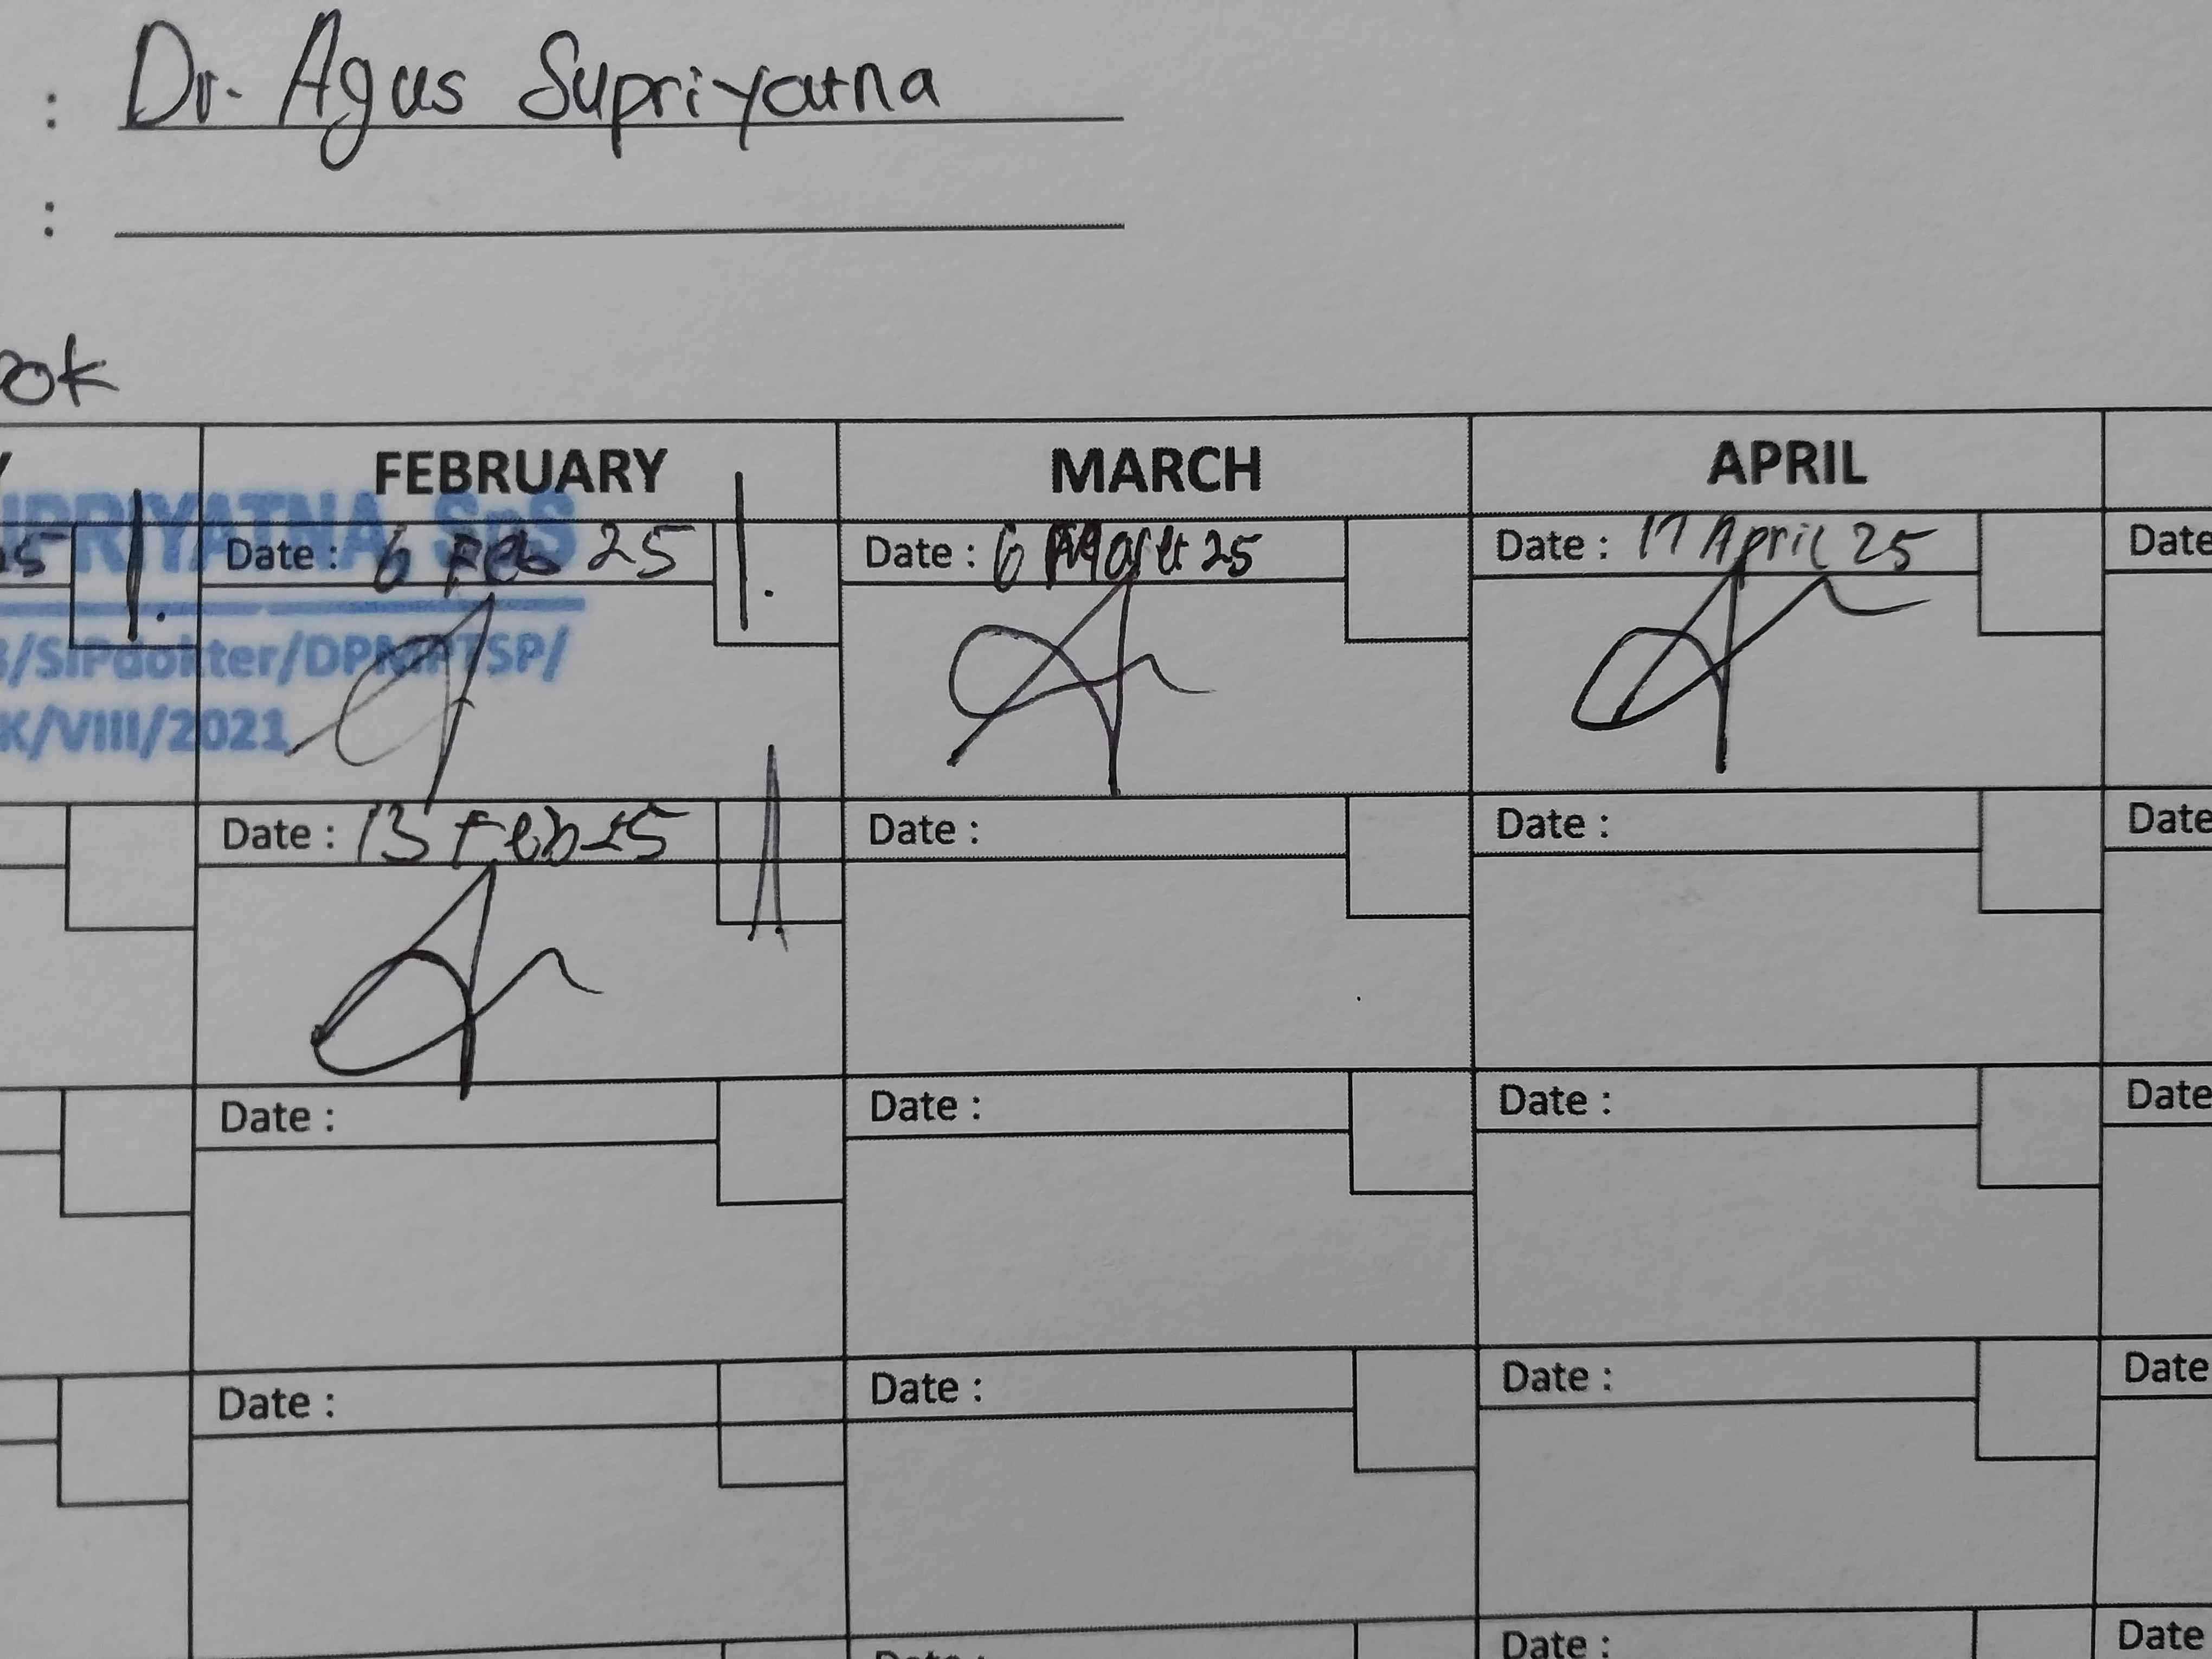 : Dr. Agus Supriyatna
:
ok
FEBRUARY MARCH APRIL
UPRIYATNA SpS
25 1. Date : 6 Feb 25 1. Date : 6 Maret 25 Date : 17 April 25 Date
/SIPdokter/DPMPTSP/
K/VIII/2021
Date : 13 Feb 25 Date : Date : Date
Date : Date : Date : Date
Date : Date : Date : Date
Date : Date : Date